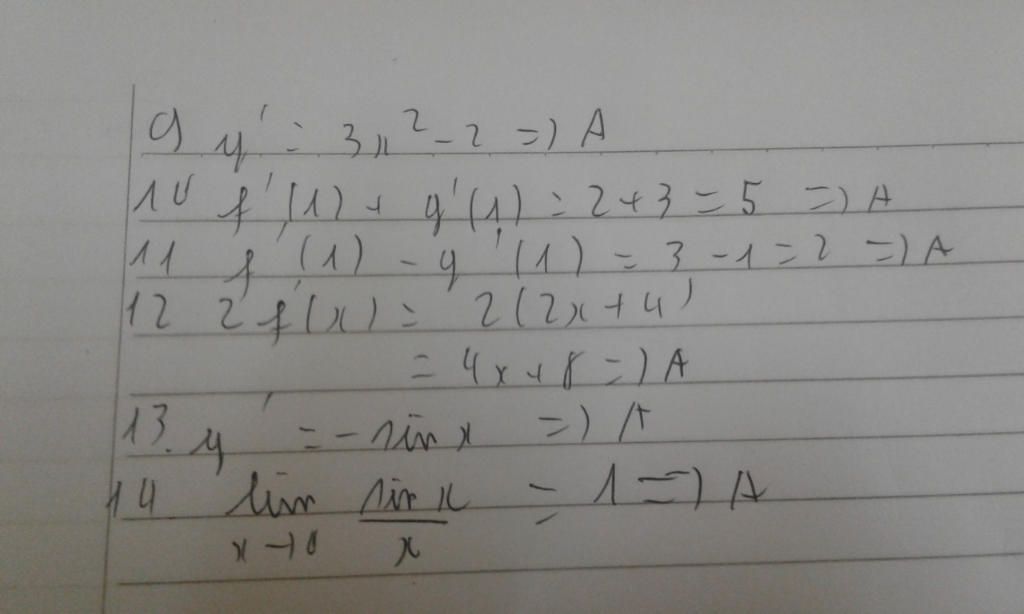 9 y' = 3x² - 2 => A
10 f'(1) + g'(1) = 2 + 3 = 5 => A
11 f'(1) - g'(1) = 3 - 1 = 2 => A
12 2f'(x) = 2(2x + 4)
= 4x + 8 => A
13. y' = - sin x => A
14 lim x→0 sin x / x = 1 => A